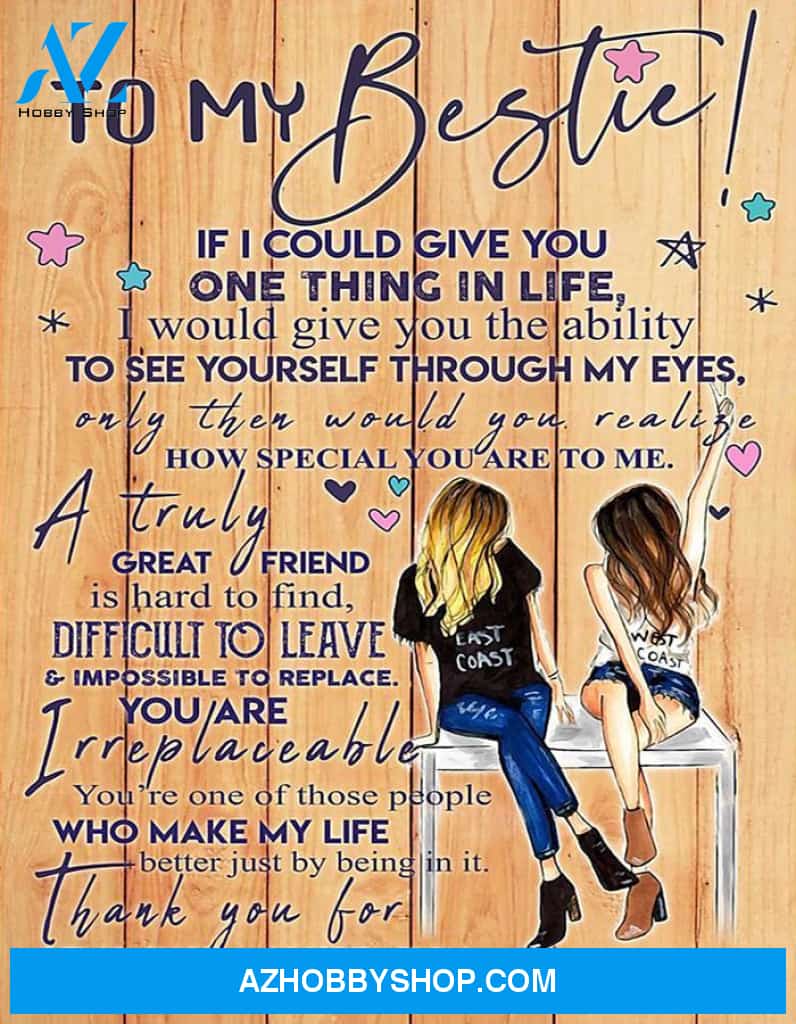 AZ
HOBBY SHOP
TO MY Bestie!
IF I COULD GIVE YOU
ONE THING IN LIFE,
I would give you the ability
TO SEE YOURSELF THROUGH MY EYES,
only then would you realize
HOW SPECIAL YOU ARE TO ME.
A truly
GREAT FRIEND
is hard to find,
DIFFICULT TO LEAVE
& IMPOSSIBLE TO REPLACE.
YOU ARE
Irreplaceable
You're one of those people
WHO MAKE MY LIFE
better just by being in it.
Thank you for
EAST
COAST
WEST
COAST
AZHOBBYSHOP.COM